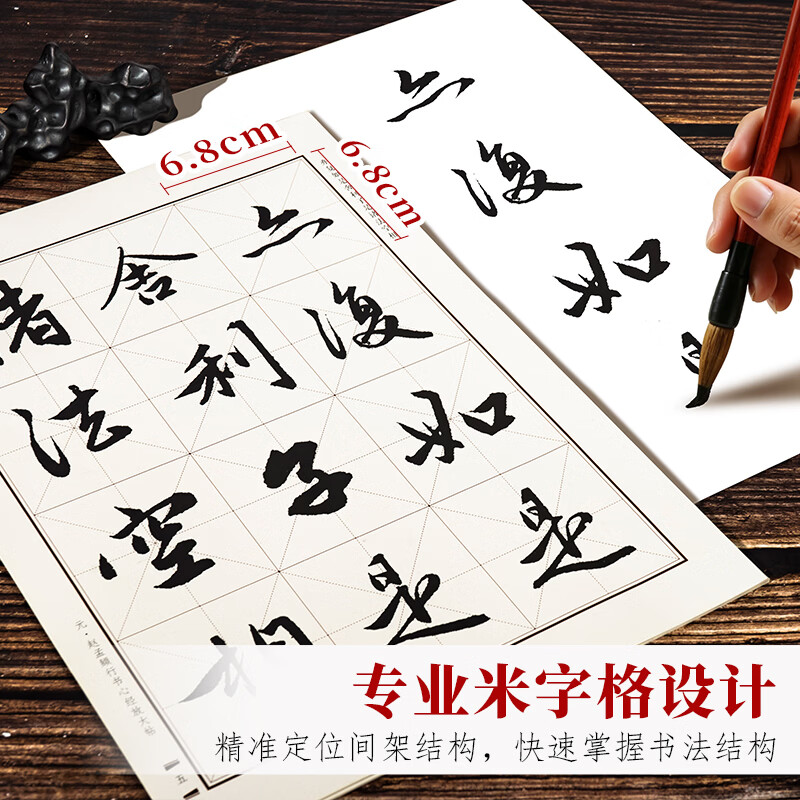 6.8cm
6.8cm
亦復如
亦復如是
舍利子是
諸法空相
元·赵孟頫行书心经放大帖
五
专业米字格设计
精准定位间架结构，快速掌握书法结构